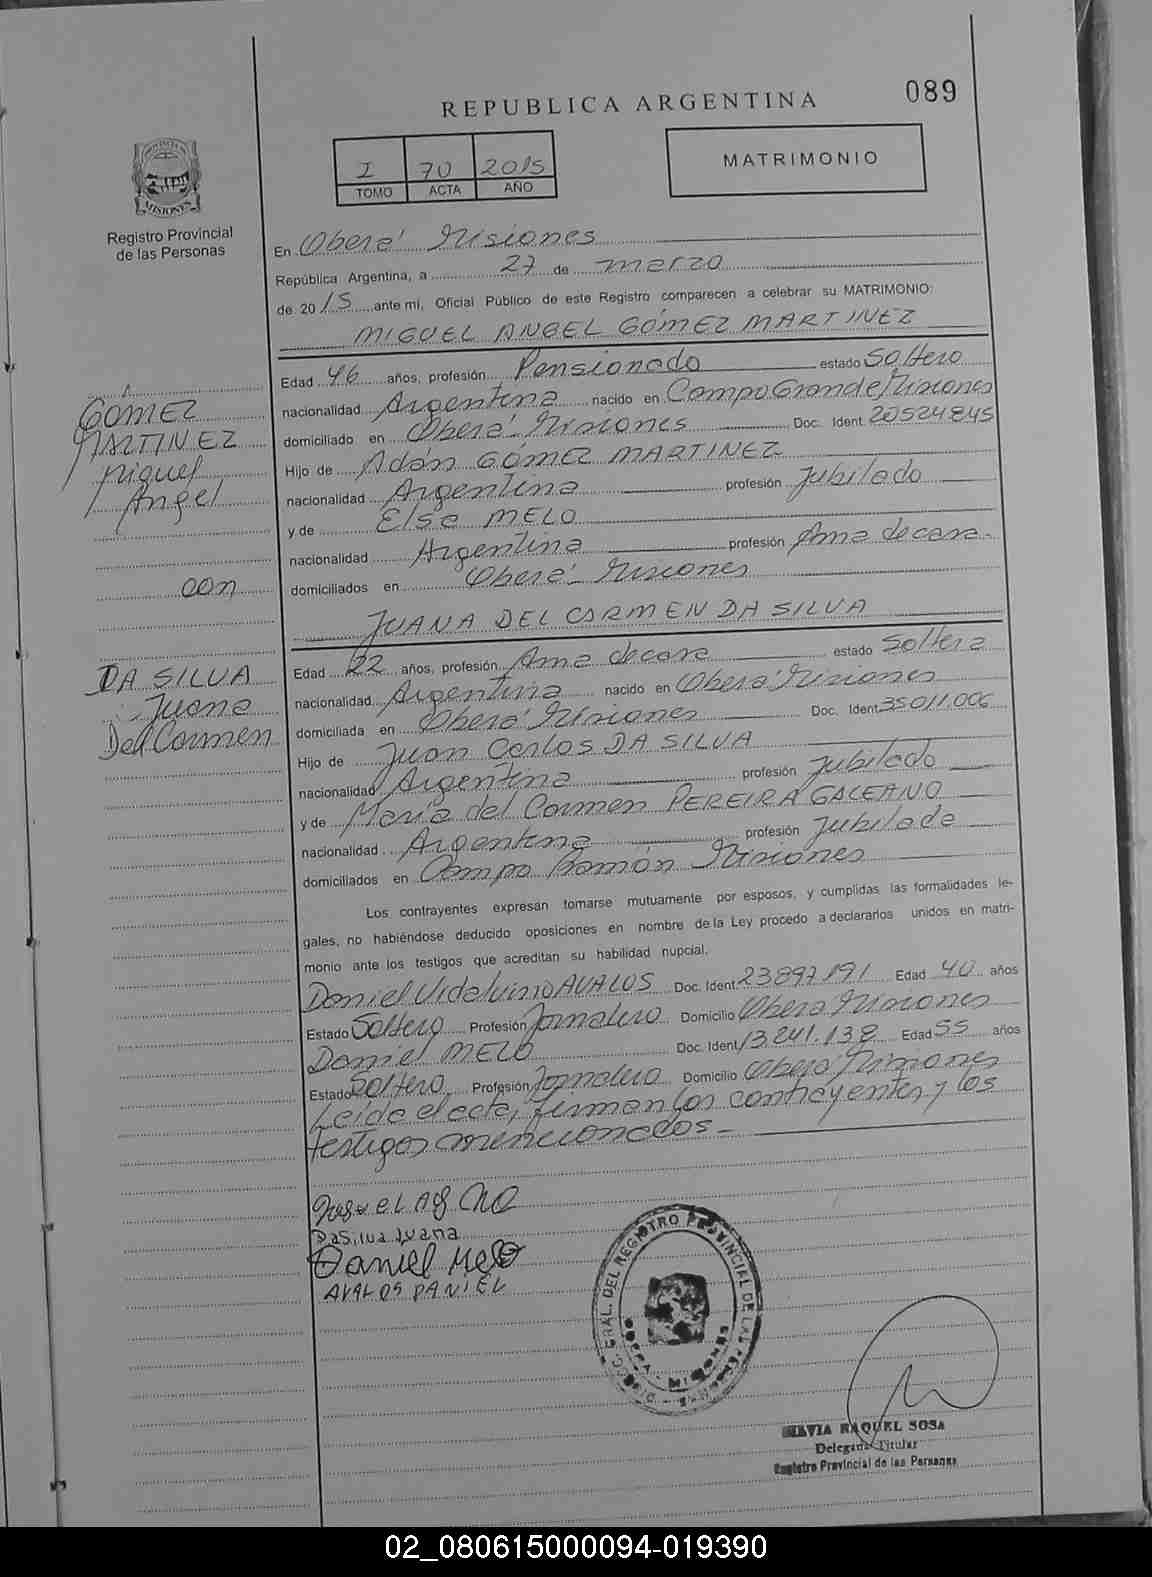 089
REPUBLICA ARGENTINA
I 70 2015
TOMO ACTA AÑO
MATRIMONIO
PROVINCIA DE
MISIONES
Registro Provincial
de las Personas
En Oberá Misiones
República Argentina, a 27 de marzo
de 2015 ante mi, Oficial Público de este Registro comparecen a celebrar su MATRIMONIO:
MIGUEL ANGEL GÓMEZ MARTINEZ
Edad 46 años, profesión Pensionado estado Soltero
nacionalidad Argentina nacido en Campo Grande/Misiones
domiciliado en Oberá - Misiones Doc. Ident 20524845
Hijo de Adán GÓMEZ MARTINEZ
nacionalidad Argentina profesión Jubilado
y de Elsa MELO
nacionalidad Argentina profesión Ama de casa.
domiciliados en Oberá - Misiones
GÓMEZ
MARTINEZ
Miguel
Angel
con
DA SILVA
Juana
Del Carmen
JUANA DEL CARMEN DA SILVA
Edad 22 años, profesión Ama de casa estado Soltera
nacionalidad Argentina nacido en Oberá Misiones
domiciliada en Oberá Misiones Doc. Ident 35011.006
Hijo de Juan Carlos DA SILVA
nacionalidad Argentina profesión Jubilado
y de María del Carmen PEREIRA GALEANO
nacionalidad Argentina profesión Jubilada
domiciliados en Campo Ramón Misiones
Los contrayentes expresan tomarse mutuamente por esposos, y cumplidas las formalidades le-
gales, no habiéndose deducido oposiciones en nombre de la Ley procedo a declararlos unidos en matri-
monio ante los testigos que acreditan su habilidad nupcial.
Daniel Vidalvino AVALOS Doc. Ident 23897191 Edad 40 años
Estado Soltero Profesión Jornalero Domicilio Oberá Misiones
Daniel MELO Doc. Ident 13.241.138 Edad 55 años
Estado Soltero Profesión Jornalero Domicilio Oberá Misiones
Leída el acta, firman los contrayentes y los
testigos mencionados -
DaSilva Juana
Daniel Melo
AVALOS DANIEL
DIRECC. GRAL. DEL REGISTRO PROVINCIAL DE LAS PERSONAS
OBERA - MISIONES
SILVIA RAQUEL SOSA
Delegada Titular
Registro Provincial de las Personas
02_080615000094-019390